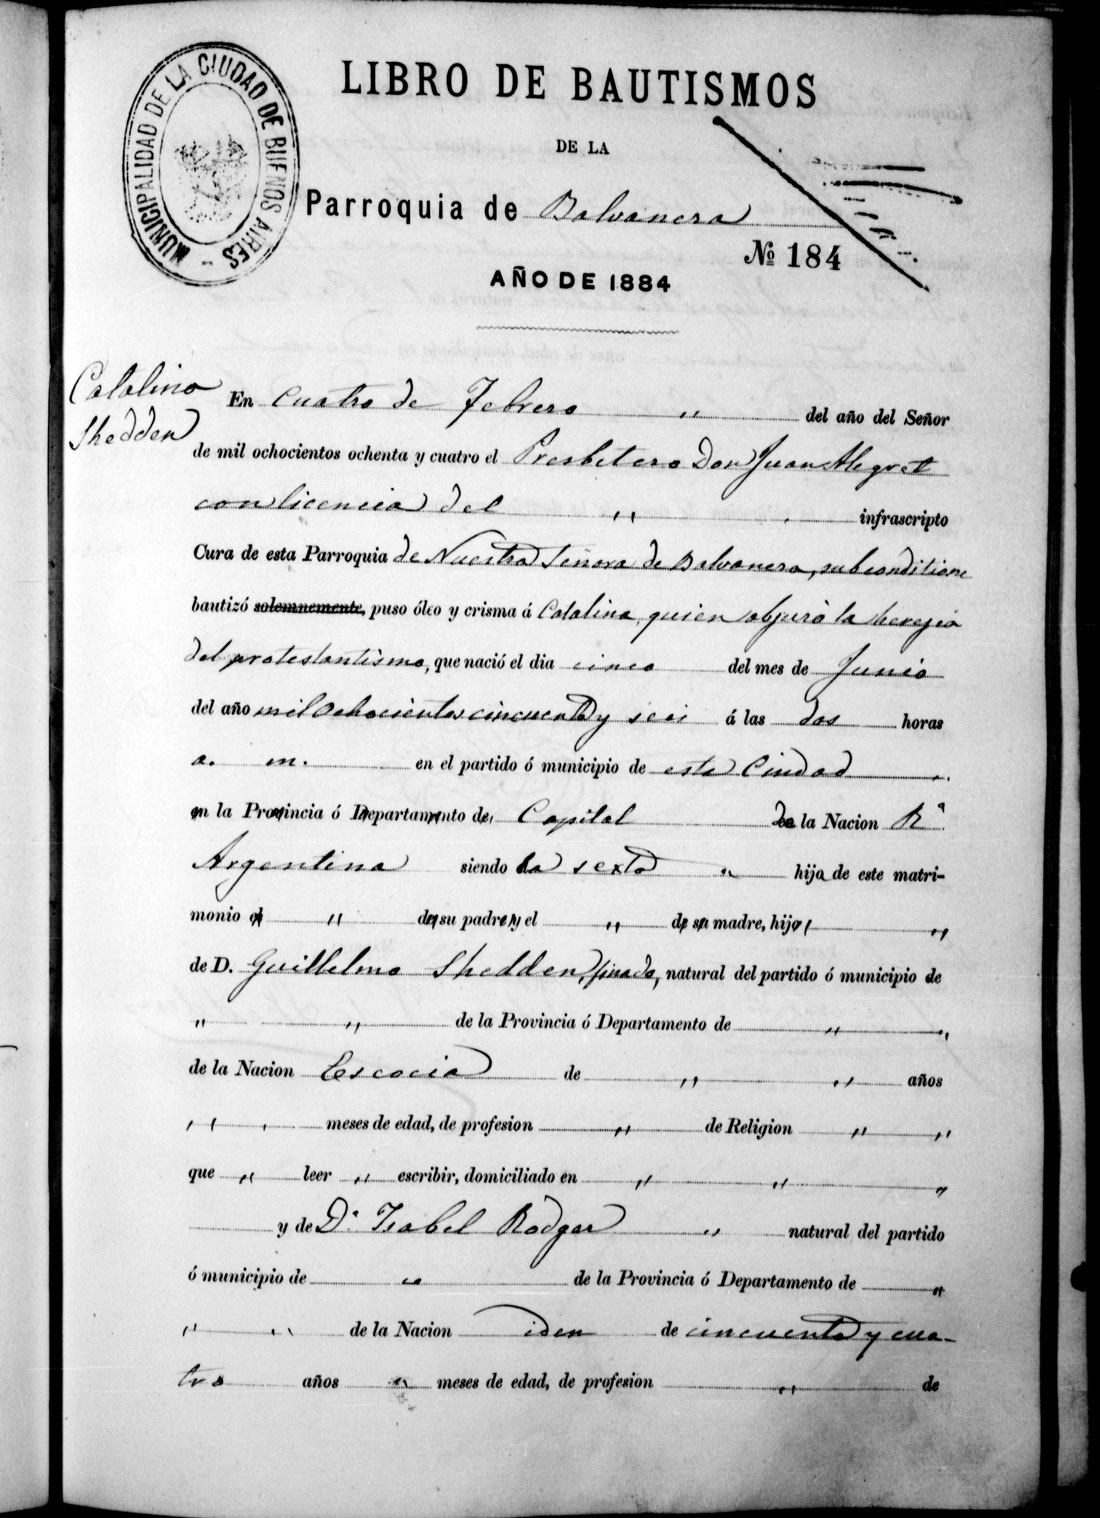 MUNICIPALIDAD DE LA CIUDAD DE BUENOS AIRES
LIBRO DE BAUTISMOS
DE LA
Parroquia de Balvanera
Nº 184
AÑO DE 1884
Catalina
Shedden
En cuatro de Febrero " del año del Señor
de mil ochocientos ochenta y cuatro el Presbitero Don Juan Alegret
con licencia del " infrascripto
Cura de esta Parroquia de Nuestra Señora de Balvanera, subconditione
bautizó solemnemente, puso óleo y crisma á Catalina, quien abjuró la heregia
del protestantismo, que nació el dia cinco del mes de Junio
del año mil ochocientos cincuenta y seis á las dos horas
a. m. en el partido ó municipio de esta Ciudad "
en la Provincia ó Departamento de Capital de la Nacion Rª
Argentina siendo la sexta " hija de este matri-
monio el " de su padre y el " de su madre, hijo "
de D. Guillelmo Shedden, finado, natural del partido ó municipio de
" " de la Provincia ó Departamento de " "
de la Nacion Escocia de " " años
" " meses de edad, de profesion " de Religion " "
que " leer " escribir, domiciliado en " " "
y de Dª Isabel Rodger " natural del partido
ó municipio de " de la Provincia ó Departamento de "
" " de la Nacion iden de cincuenta y cua-
tro años " meses de edad, de profesion " de